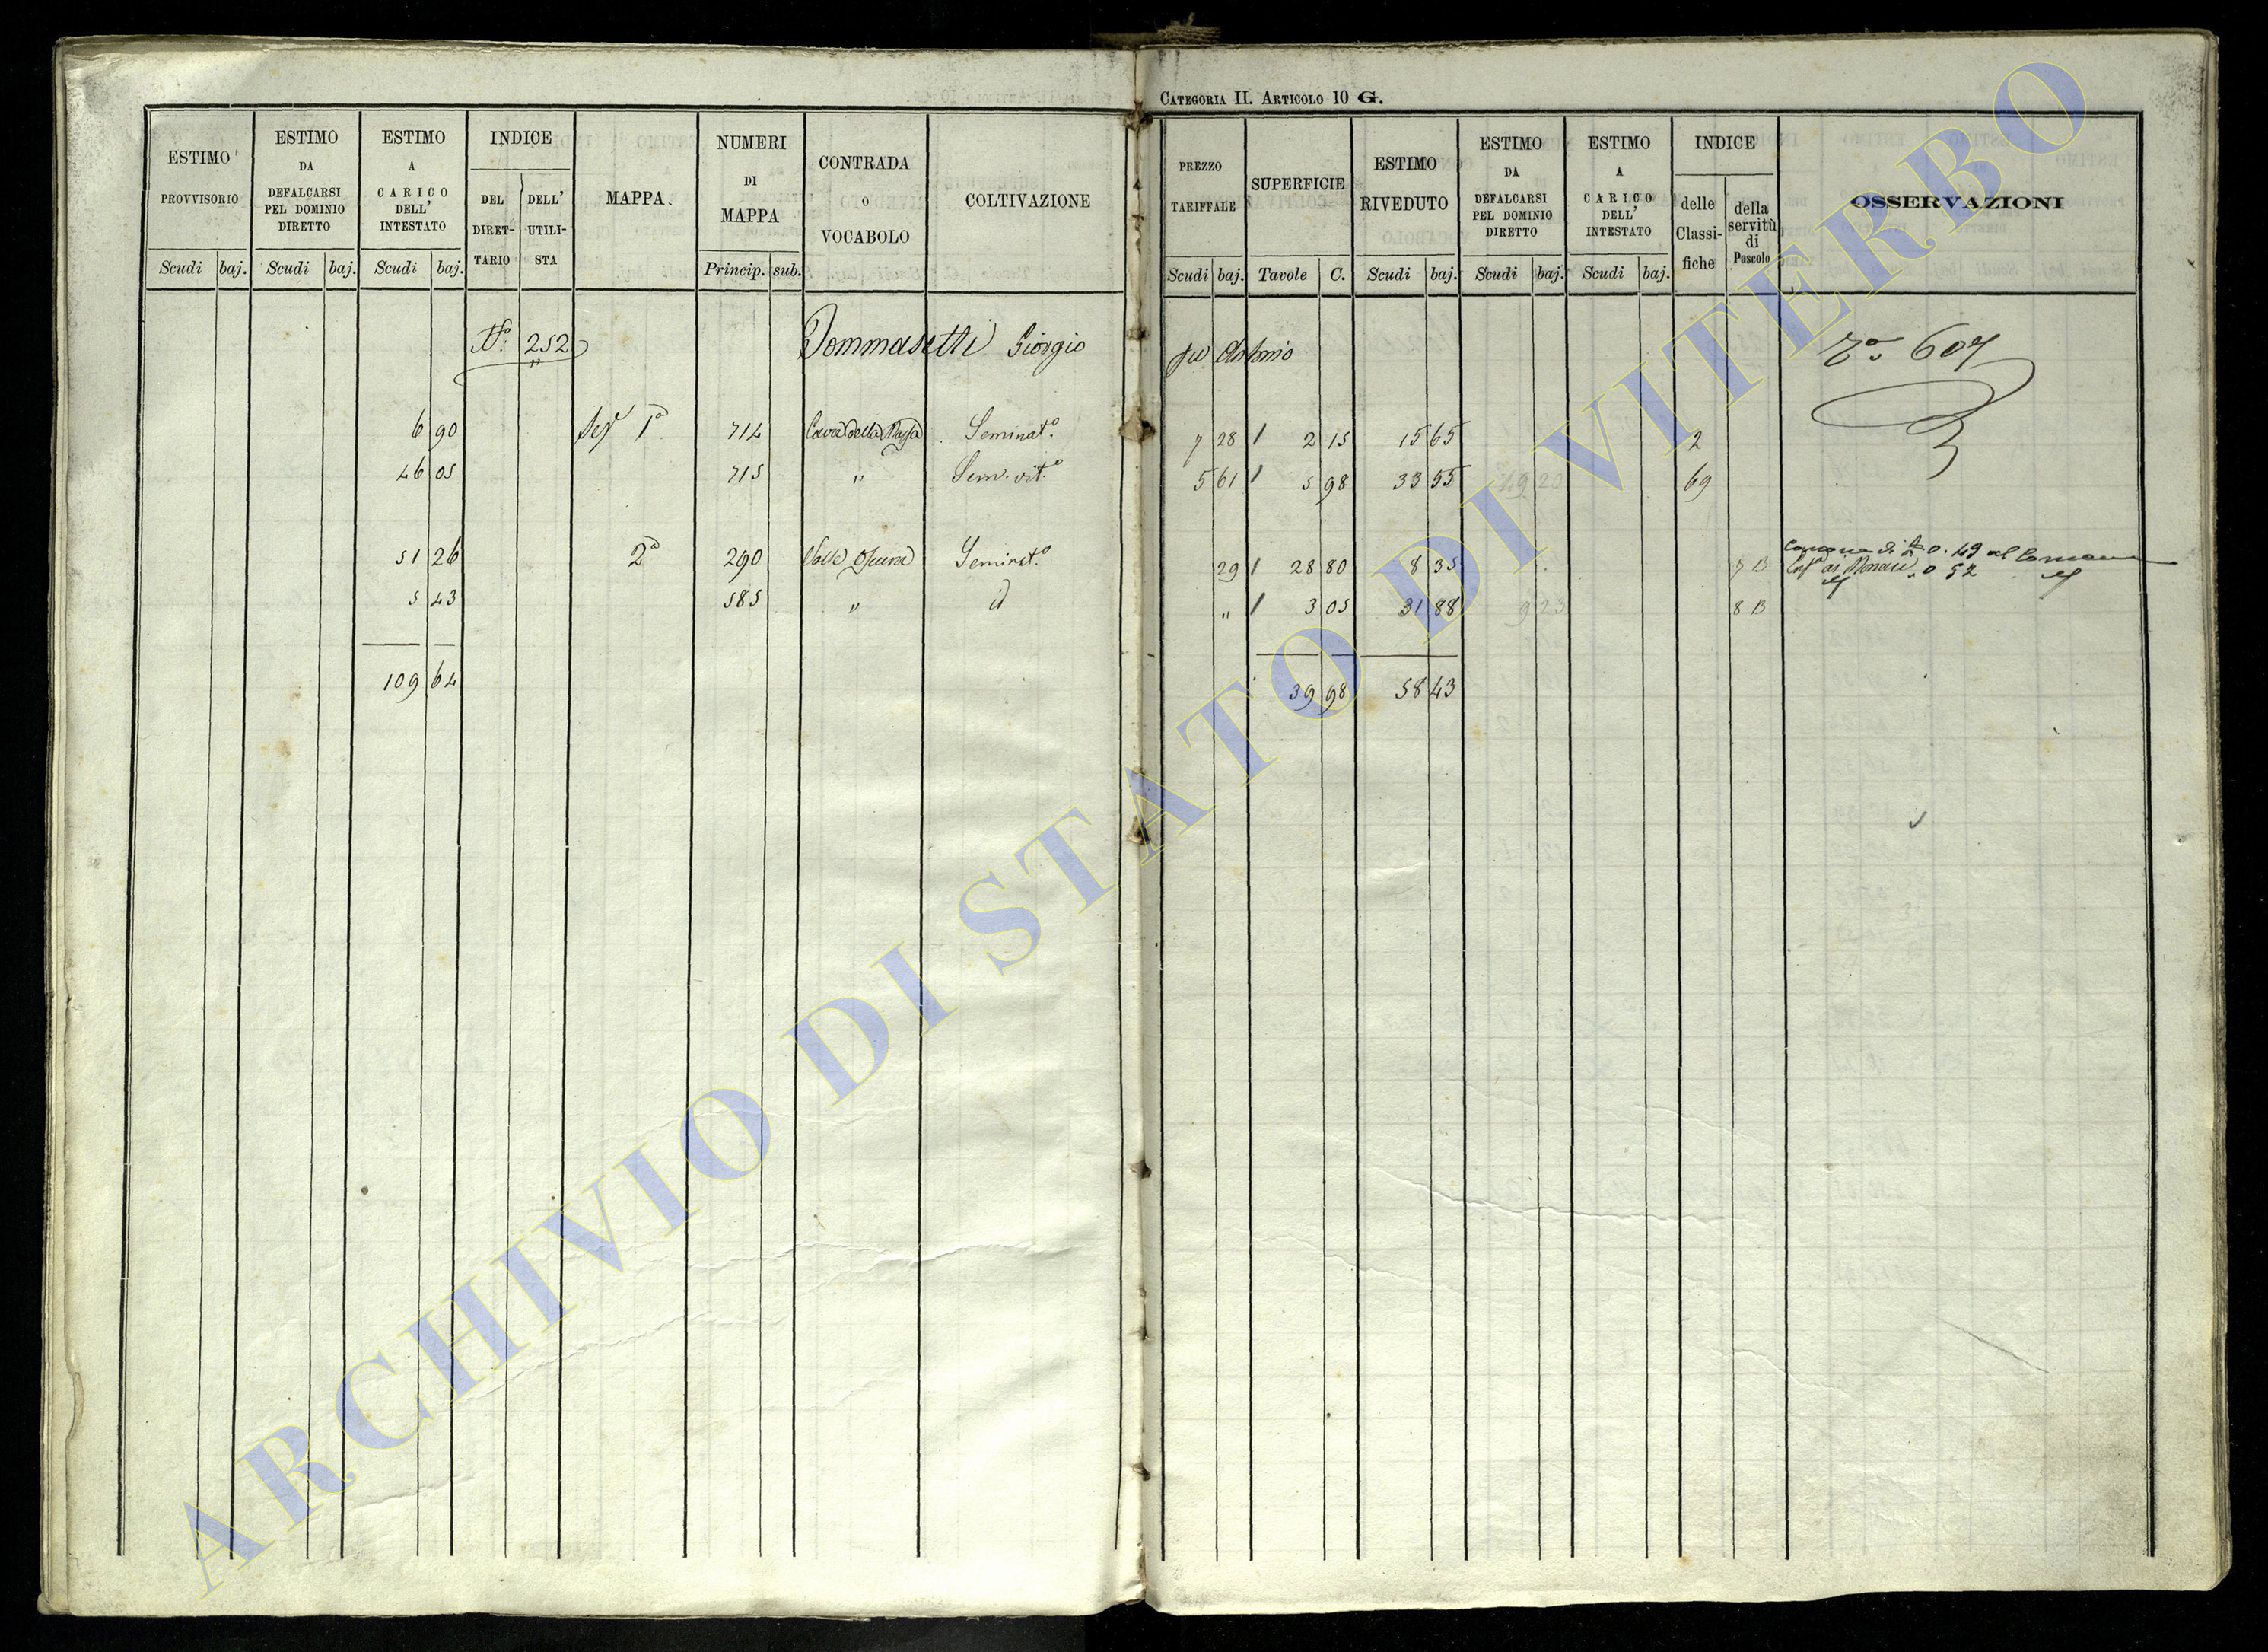 CATEGORIA II. ARTICOLO 10 G.
ESTIMO PROVVISORIO
Scudi baj.
ESTIMO DA DEFALCARSI PEL DOMINIO DIRETTO
Scudi baj.
ESTIMO A CARICO DELL' INTESTATO
Scudi baj.
INDICE
DEL DIRET-TARIO
DELL' UTILI-STA
MAPPA.
NUMERI DI MAPPA
Princip. sub.
CONTRADA o VOCABOLO
COLTIVAZIONE
PREZZO TARIFFALE
Scudi baj.
SUPERFICIE
Tavole C.
ESTIMO RIVEDUTO
Scudi baj.
ESTIMO DA DEFALCARSI PEL DOMINIO DIRETTO
Scudi baj.
ESTIMO A CARICO DELL' INTESTATO
Scudi baj.
INDICE
delle Classi-fiche
della servitù di Pascolo
OSSERVAZIONI
N.° 252 Tommasetti Giorgio fu Antonio 607
6 90 1ª 714 Seminat.° 7 28 2 15 15 65 2
46 05 715 " Sem. vit.° 5 61 5 98 33 55 19 20 69
51 26 2ª 290 Valle Oscura Seminat.° 29 28 80 8 35 7 B
5 43 585 " id " 3 05 31 88 9 23 8 B
109 64 39 98 58 43
ARCHIVIO DI STATO DI VITERBO